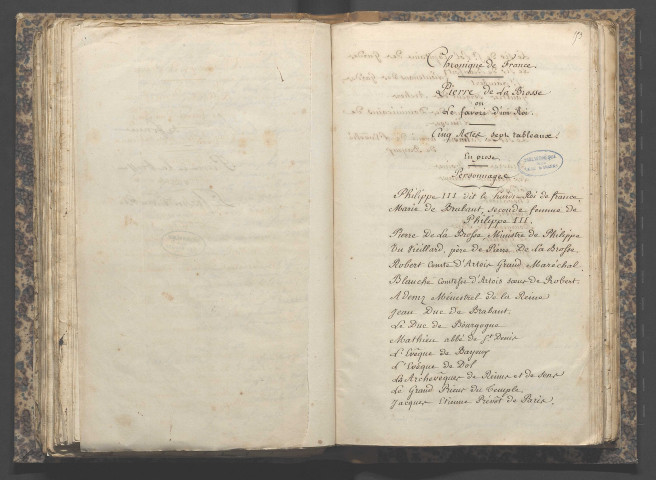 Chronique de France.
Pierre de La Brosse
ou
Le favori d'un Roi.
Cinq Actes sept tableaux.
En prose
Personnages
Philippe III dit le hardi Roi de france.
Marie de Brabant, seconde femme de
Philippe III.
Pierre De la Brosse Ministre de Philippe
Un Vieillard, père de Pierre De la Brosse
Robert Comte d'Artois Grand Maréchal
Blanche Comtesse d'Artois sœur de Robert
Adenez Ménestrel de la Reine
Jean Duc de Brabant
Le Duc de Bourgogne
Mathieu abbé de St Denis
L'Evêque de Bayeux
L'Evêque de Dol
Les Archevêques de Reims et de Sens
Le Grand Prieur du Temple
Jacques Etienne Prévôt de Paris.